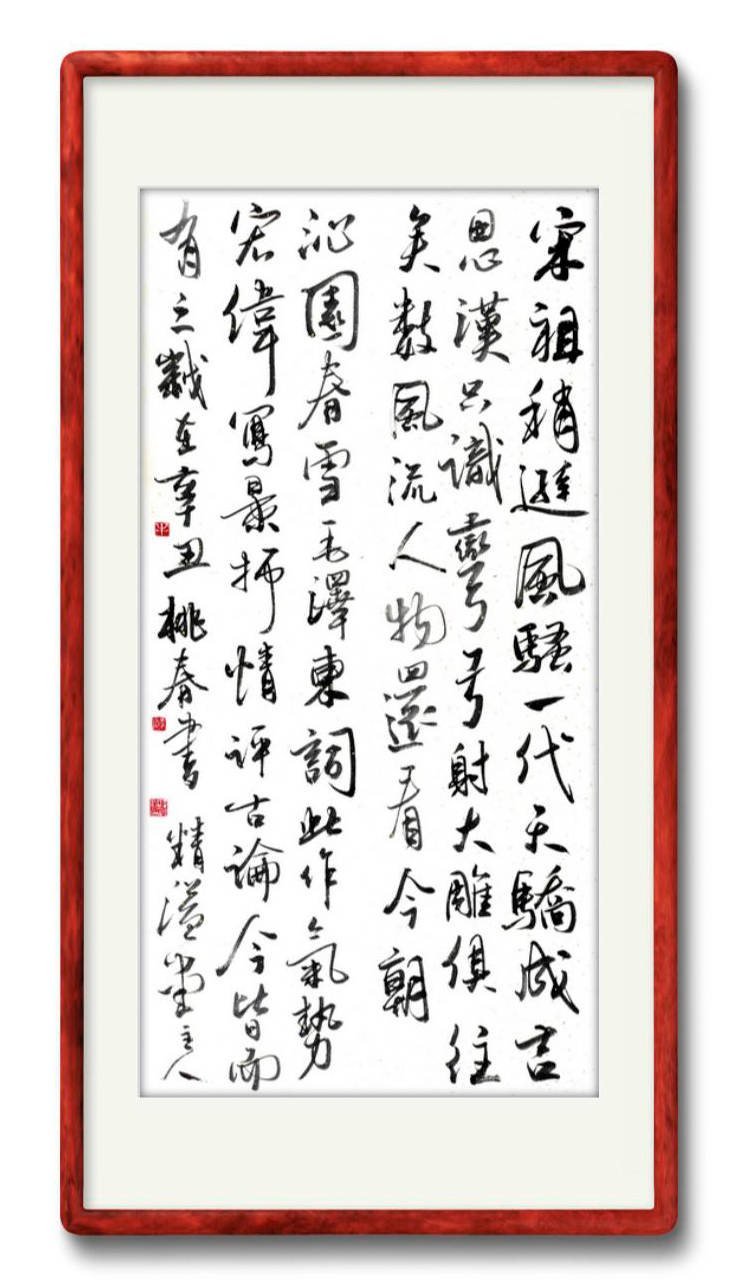 宋祖稍遜風騷一代天驕成吉
思漢只識彎弓射大雕俱往
矣數風流人物還看今朝
沁園春雪毛澤東詞此作氣勢
宏偉寫景抒情評古論今皆而
有之歲在辛丑桃春書 精溢堂主人